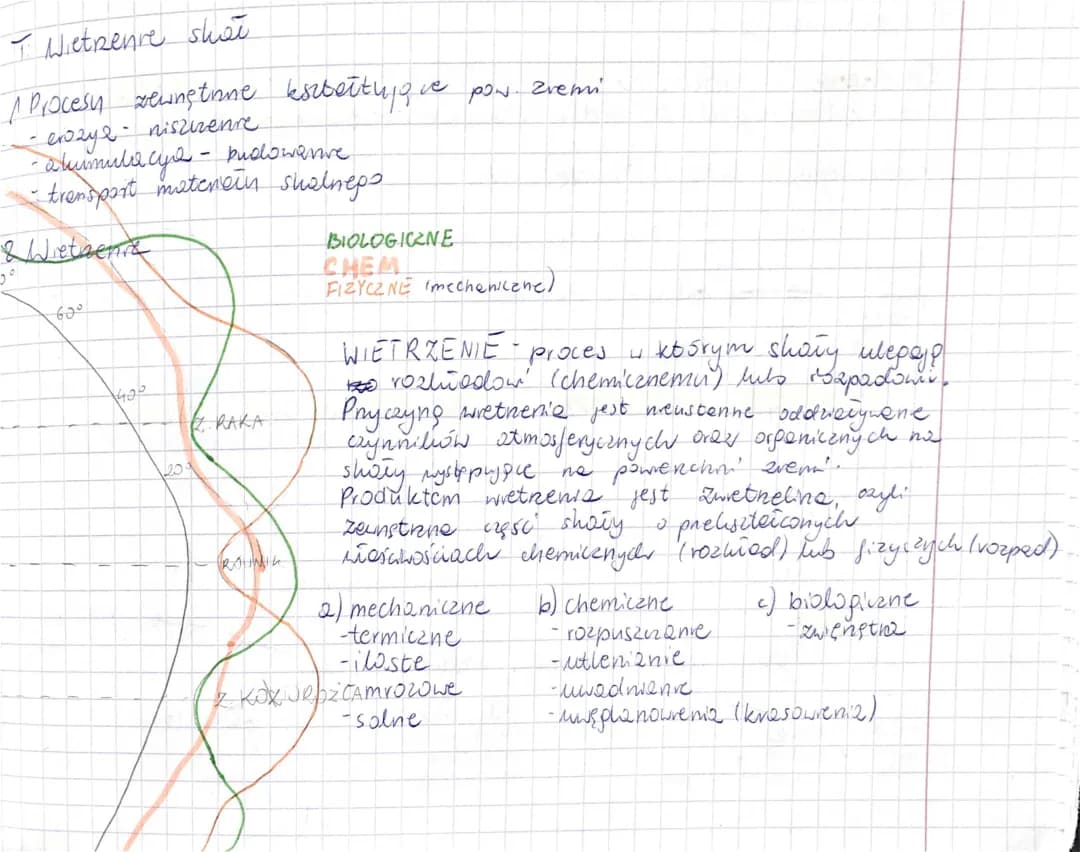 T: Wietrzenie skał
1 Procesy zewnętrzne kształtujące pow. ziemi
- erozja - niszczenie
- akumulacja - budowanie
- transport materiału skalnego
2 Wietrzenie
BIOLOGICZNE
CHEM
FIZYCZNE (mechaniczne)
60°
40°
Z. RAKA
20°
RÓWNIK
Z. KOZIOROŻCA
WIETRZENIE - proces w którym skały ulegają
rozkładowi (chemicznemu) lub rozpadowi.
Przyczyną wietrzenia jest nieustanne oddziaływanie
czynników atmosferycznych oraz organicznych na
skały występujące na powierzchni ziemi.
Produktem wietrzenia jest zwietrzelina, czyli
zewnętrzna część skały o przekształconych
właściwościach chemicznych (rozkład) lub fizycznych (rozpad)
a) mechaniczne b) chemiczne c) biologiczne
- termiczne - rozpuszczanie - zwierzęta
- ilaste - utlenianie
mrozowe - uwadnianie
- solne - uwęglanowienia (krasowienia)